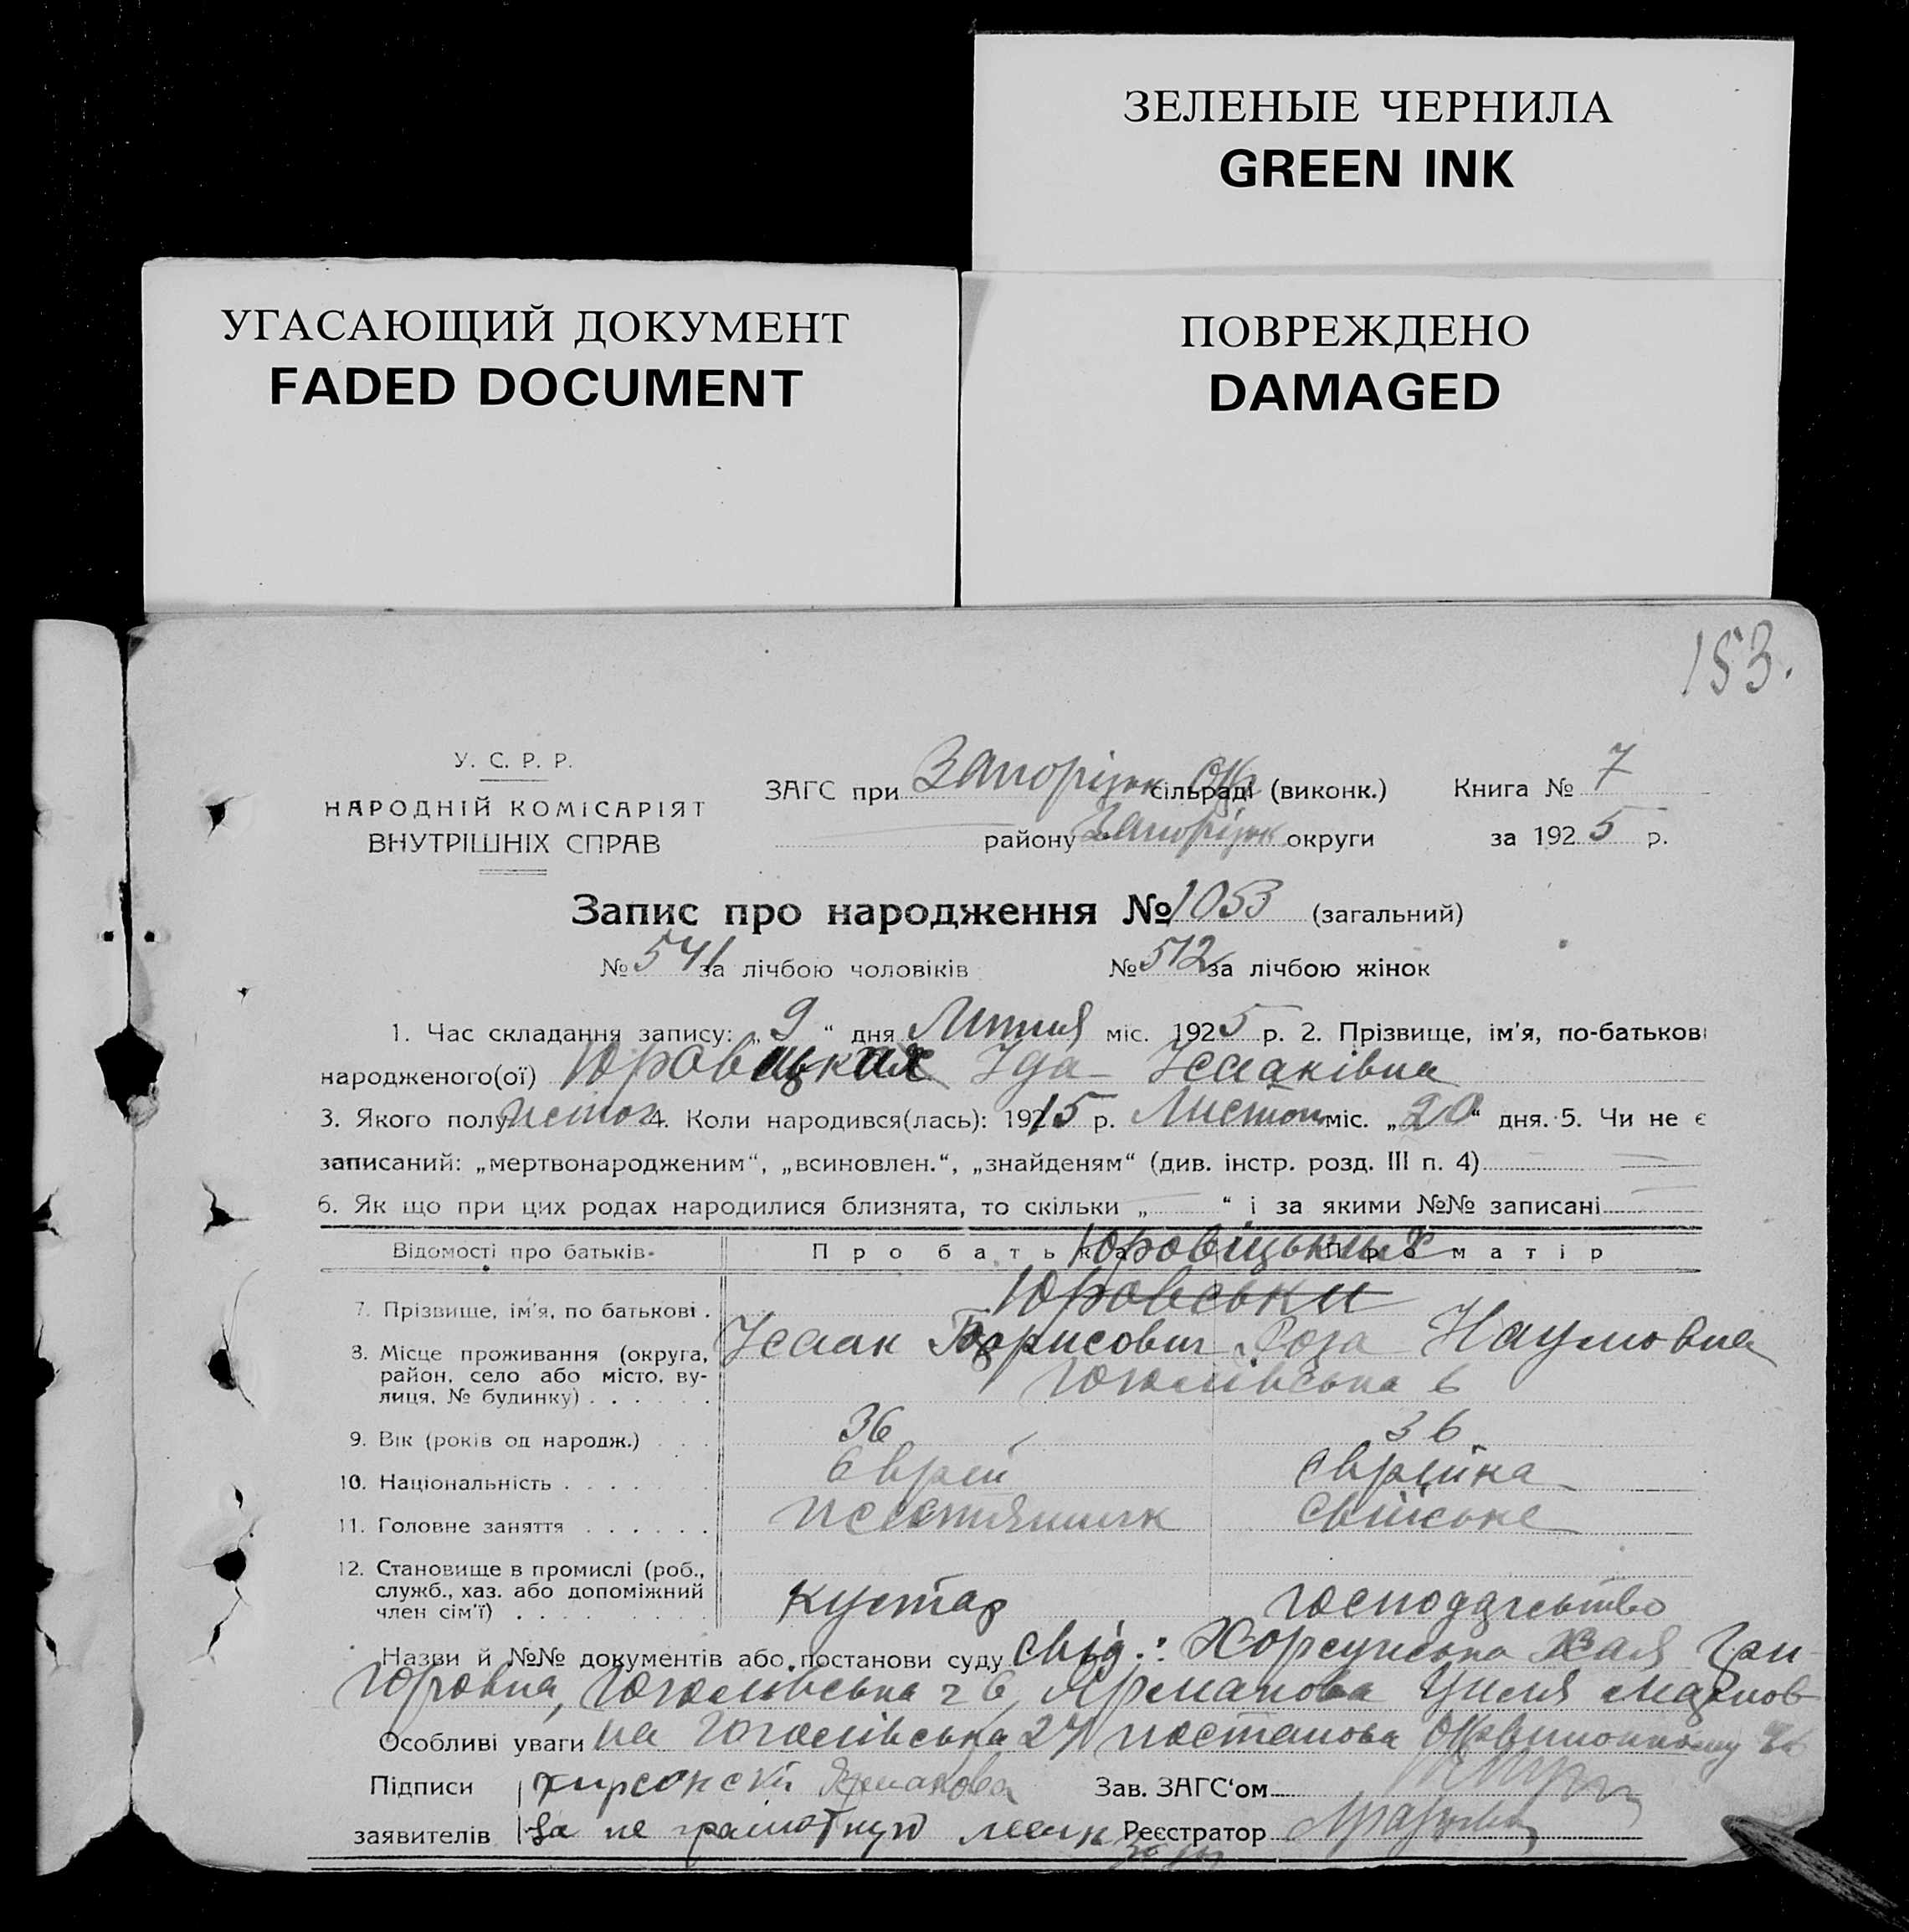 ЗЕЛЕНЫЕ ЧЕРНИЛА
GREEN INK
УГАСАЮЩИЙ ДОКУМЕНТ
FADED DOCUMENT
ПОВРЕЖДЕНО
DAMAGED
153.
У. С. Р. Р.
НАРОДНІЙ КОМІСАРІЯТ
ВНУТРІШНІХ СПРАВ
ЗАГС при Запорізьк сільраді (виконк.)
району Запорізьк округи
Книга № 7
за 1925 р.
Запис про народження № 1053 (загальний)
№ 541 за лічбою чоловіків № 512 за лічбою жінок
1. Час складання запису: „ 9 “ дня міс. 1925 р. 2. Прізвище, ім'я, по-батькові
народженого(ої) Юровицьких Іда Ісааківна
3. Якого полу 4. Коли народився(лась): 1915 р. Листоп міс. „20“ дня. 5. Чи не є
записаний: „мертвонародженим“, „всиновлен.“, „знайденям“ (див. інстр. розд. III п. 4)
6. Як що при цих родах народилися близнята, то скільки „ “ і за якими №№ записані
Відомості про батьків Про батька Про матір
Юровицьких
7. Прізвище, ім'я, по батькові . Юровськи
Ісаак Борисович Роза Наумовна
8. Місце проживання (округа, район, село або місто, вулиця, № будинку) . . . . . . Гоголівська 6
9. Вік (років од народж.) . . . 36 36
10. Національність . . . . . . . Єврей Єврейка
11. Головне заняття . . . . . . Свійське
12. Становище в промислі (роб., служб., хаз. або допоміжний член сім'ї) . . . . кустар господарство
Назви й №№ документів або постанови суду Свід.: Хорсунська Хая Гри-
горовна, Гоголівська 6, Ярмакова Циля
Особливі уваги на Гоголівська 27 постанова
Підписи Ярмакова Зав. ЗАГС'ом
заявителів За не грамотную Реєстратор